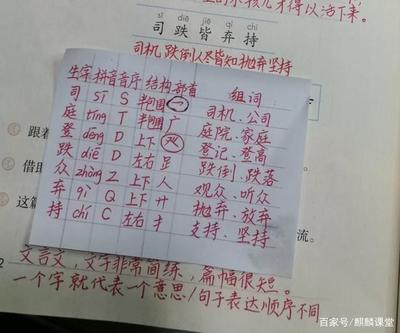 的小孩儿才得以活下来。
sī diē jiē qì chí
司跌皆弃持
司机 跌倒 人尽皆知 抛弃 坚持
生字 拼音 音序 结构 部首 组词
司 sī S 半包围 一 司机、公司
庭 tíng T 半包围 广 庭院、家庭
登 dēng D 上下 癶 登记、登高
跌 diē D 左右 足 跌倒、跌落
众 zhòng Z 上下 人 观众、听众
弃 qì Q 上下 廾 抛弃、放弃
持 chí C 左右 扌 支持、坚持
跟着
借助
这篇
流。
2
文言文,文字非常简练,篇幅很短。
一个字就代表一个意思/句子表达顺序不同
百家号/麒麟课堂